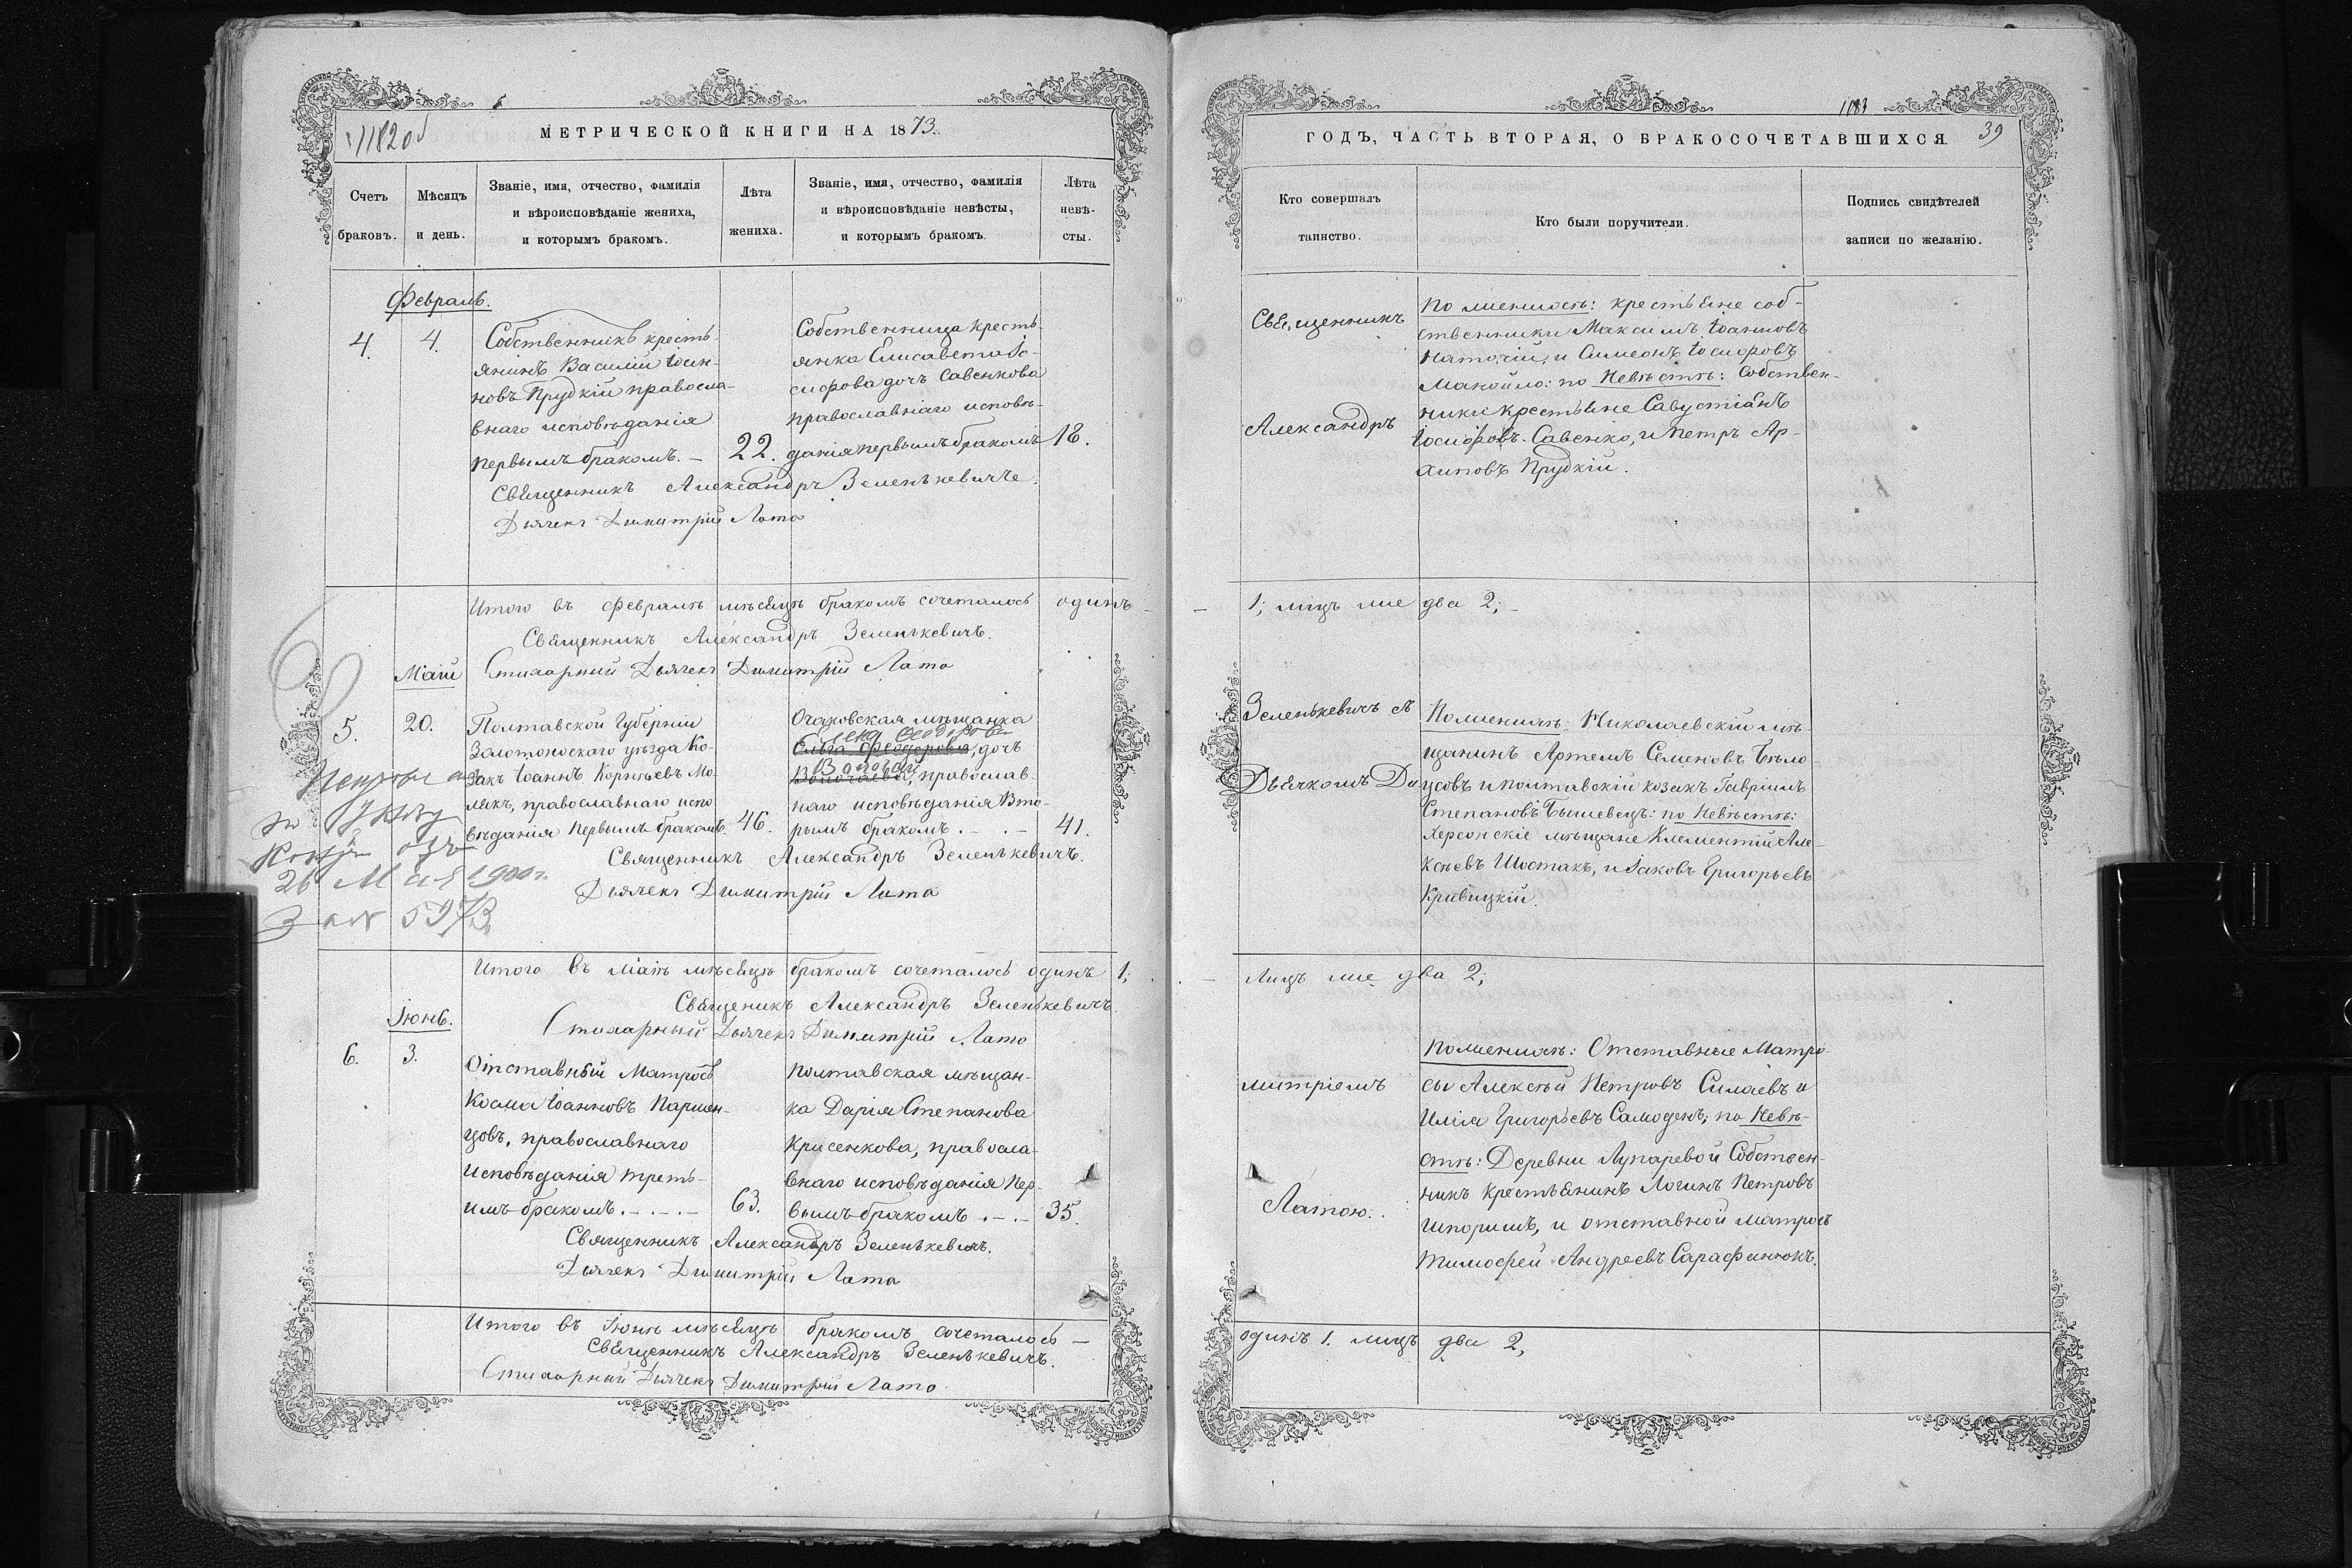 11820б
МЕТРИЧЕСКОЙ КНИГИ НА 1873.
Счетъ
браковъ.
Мѣсяцъ
и день.
Званіе, имя, отчество, фамилія
и вѣроисповѣданіе жениха,
и которымъ бракомъ.
Лѣта
жениха.
Званіе, имя, отчество, фамилія
и вѣроисповѣданіе невѣсты,
и которымъ бракомъ.
Лѣта
невѣ-
сты.
Февраль.
4.
4.
Собственникъ кресть-
янинъ Василій Іоан-
новъ Прудкій правосла-
внаго исповѣданія
первымъ бракомъ. –
22.
Собственница кресть-
янка Елисавета Іо-
сифова дочь Савенкова
православнаго исповѣ-
данія первымъ бракомъ
18.
Священникъ Александръ Зеленькевичъ.
Дьячекъ Димитрій Лата
Итого въ Февралѣ мѣсяцѣ бракомъ сочеталось одинъ –
Священникъ Александръ Зеленькевичъ.
Стихарный Дьячекъ Димитрій Лата
Маій
5.
20.
Полтавской Губерніи
Золотоноскаго уѣзда Ко-
закъ Іоаннъ Корнѣевъ Мо-
лекъ, православнаго испо
вѣданія первымъ бракомъ.
46.
Очаковская мѣщанка
Ольга Феодорова, дочь
православ-
наго исповѣданія Вто-
рымъ бракомъ . – . –
41.
Священникъ Александръ Зеленькевичъ.
Дьячекъ Димитрій Лата
по Указу
26 Мая 1900 г.
за № 5973
Итого въ Маіѣ мѣсяцѣ бракомъ сочеталось одинъ 1;
Священикъ Александръ Зеленькевичъ.
Стихарный Дьячекъ Димитрій Лата
Іюнь.
6.
3.
Отставный Матросъ
Косма Іоанновъ Паршен-
цовъ, православнаго
исповѣданія треть-
имъ бракомъ. – . – . –
63.
Полтавская мѣщан-
ка Дарія Степанова
Крисенкова, правосла-
внаго исповѣданія Пер-
вымъ бракомъ . – . –
35.
Священникъ Александръ Зеленькевичъ.
Дьячекъ Димитрій Лата
Итого въ Іюнѣ мѣсяцѣ бракомъ сочеталось –
Священникъ Александръ Зеленькевичъ.
Стихарный Дьячекъ Димитрій Лата
1183
ГОДЪ, ЧАСТЬ ВТОРАЯ, О БРАКОСОЧЕТАВШИХСЯ
39
Кто совершалъ
таинство.
Кто были поручители.
Подпись свидѣтелей
записи по желанію.
Священникъ
Александръ
По женихѣ: крестьяне соб-
ственники Максимъ Іоанновъ
и Симеонъ Іосифовъ
Манойло: по Невѣстѣ: Собствен-
ники крестьяне Савустіанъ
Іосифовъ Савенко, и Петръ Ар-
хиповъ Прудкій.
1; лицъ же два 2; –
Зеленькевичъ съ
Дьячкомъ Ди
По женихѣ: Николаевскій мѣ-
щанинъ Артемъ Семеновъ Бѣло-
усовъ и полтавскій козакъ Гавріилъ
Степановъ Бышевецъ: по Невѣстѣ:
Херсонскіе мѣщане Климентій Але-
ксѣевъ Шостакъ, и Іаковъ Григорьевъ
Кривицкій.
Лицъ же два 2;
митріемъ
Латою.
По женихѣ: Отставные Матро-
сы Алексѣй Петровъ Силаевъ и
Илія Григорьевъ Самоденъ; по Невѣ-
стѣ: Деревни Лупаревой Собствен-
никъ крестьянинъ Логинъ Петровъ
и отставной матросъ
Тимофей Андреевъ Сарафинюкъ.
одинъ 1. лицъ два 2,